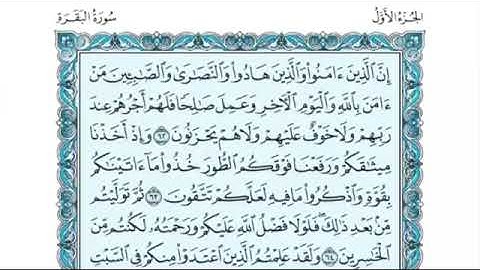 الجزء الأول سورة البقرة
إِنَّ ٱلَّذِينَ ءَامَنُوا۟ وَٱلَّذِينَ هَادُوا۟ وَٱلنَّصَٰرَىٰ وَٱلصَّٰبِـِٔينَ مَنْ
ءَامَنَ بِٱللَّهِ وَٱلْيَوْمِ ٱلْءَاخِرِ وَعَمِلَ صَٰلِحًا فَلَهُمْ أَجْرُهُمْ عِندَ
رَبِّهِمْ وَلَا خَوْفٌ عَلَيْهِمْ وَلَا هُمْ يَحْزَنُونَ ٦٢ وَإِذْ أَخَذْنَا
مِيثَٰقَكُمْ وَرَفَعْنَا فَوْقَكُمُ ٱلطُّورَ خُذُوا۟ مَآ ءَاتَيْنَٰكُم
بِقُوَّةٍ وَٱذْكُرُوا۟ مَا فِيهِ لَعَلَّكُمْ تَتَّقُونَ ٦٣ ثُمَّ تَوَلَّيْتُم
مِّنۢ بَعْدِ ذَٰلِكَ فَلَوْلَا فَضْلُ ٱللَّهِ عَلَيْكُمْ وَرَحْمَتُهُۥ لَكُنتُم مِّنَ
ٱلْخَٰسِرِينَ ٦٤ وَلَقَدْ عَلِمْتُمُ ٱلَّذِينَ ٱعْتَدَوْا۟ مِنكُمْ فِى ٱلسَّبْتِ